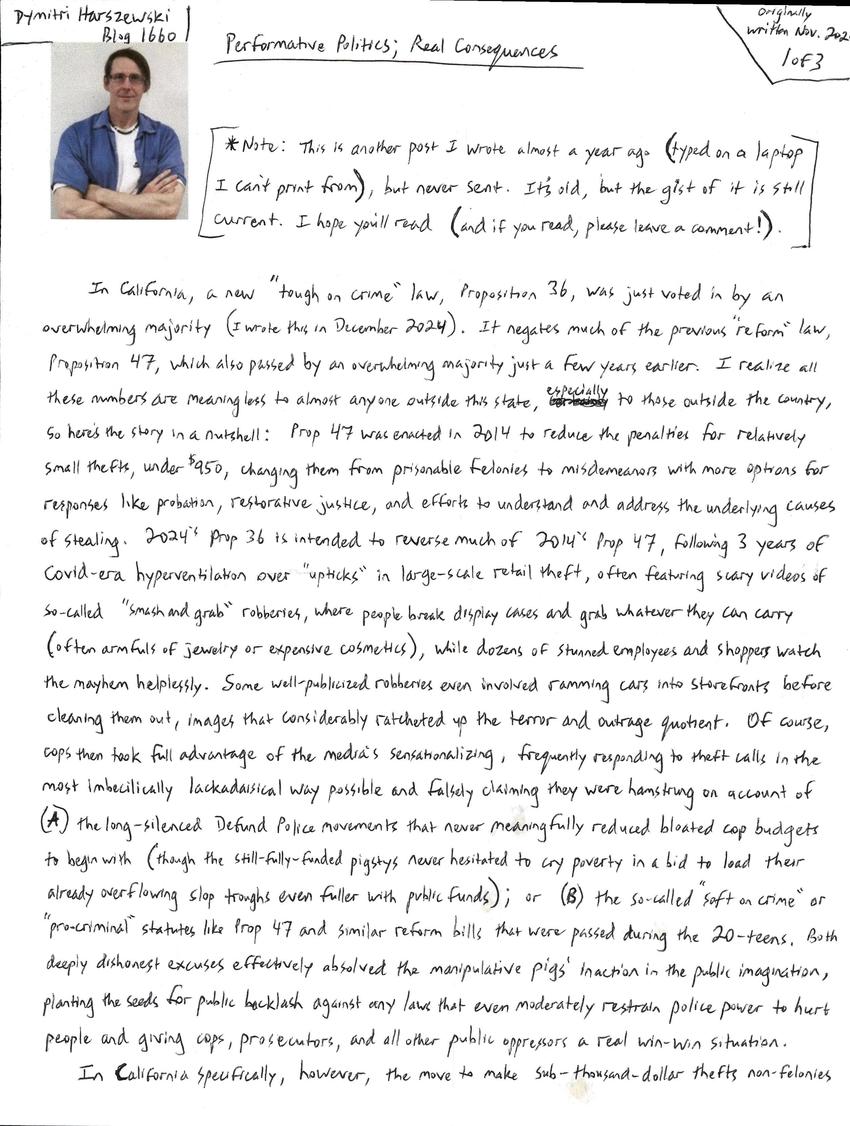 Dymitri Harszewski
Blog 1660
Performative Politics; Real Consequences
Originally
written Nov. 202
1 of 3
*Note: This is another post I wrote almost a year ago (typed on a laptop
I can't print from), but never sent. It's old, but the gist of it is still
current. I hope you'll read (and if you read, please leave a comment!).
In California, a new "tough on crime" law, Proposition 36, was just voted in by an
overwhelming majority (I wrote this in December 2024). It negates much of the previous "reform" law,
Proposition 47, which also passed by an overwhelming majority just a few years earlier. I realize all
these numbers are meaningless to almost anyone outside this state, especially to those outside the country,
so here's the story in a nutshell: Prop 47 was enacted in 2014 to reduce the penalties for relatively
small thefts, under $950, changing them from prisonable felonies to misdemeanors with more options for
responses like probation, restorative justice, and efforts to understand and address the underlying causes
of stealing. 2024's Prop 36 is intended to reverse much of 2014's Prop 47, following 3 years of
Covid-era hyperventilation over "upticks" in large-scale retail theft, often featuring scary videos of
so-called "smash and grab" robberies, where people break display cases and grab whatever they can carry
(often armfuls of jewelry or expensive cosmetics), while dozens of stunned employees and shoppers watch
the mayhem helplessly. Some well-publicized robberies even involved ramming cars into storefronts before
cleaning them out, images that considerably ratcheted up the terror and outrage quotient. Of course,
cops then took full advantage of the media's sensationalizing, frequently responding to theft calls in the
most imbecilically lackadaisical way possible and falsely claiming they were hamstrung on account of
(A) the long-silenced Defund Police movements that never meaningfully reduced bloated cop budgets
to begin with (though the still-fully-funded pigstys never hesitated to cry poverty in a bid to load their
already overflowing slop troughs even fuller with public funds); or (B) the so-called "soft on crime" or
"pro-criminal" statutes like Prop 47 and similar reform bills that were passed during the 20-teens. Both
deeply dishonest excuses effectively absolved the manipulative pigs' inaction in the public imagination,
planting the seeds for public backlash against any laws that even moderately restrain police power to hurt
people and giving cops, prosecutors, and all other public oppressors a real win-win situation.
In California specifically, however, the move to make sub-thousand-dollar thefts non-felonies